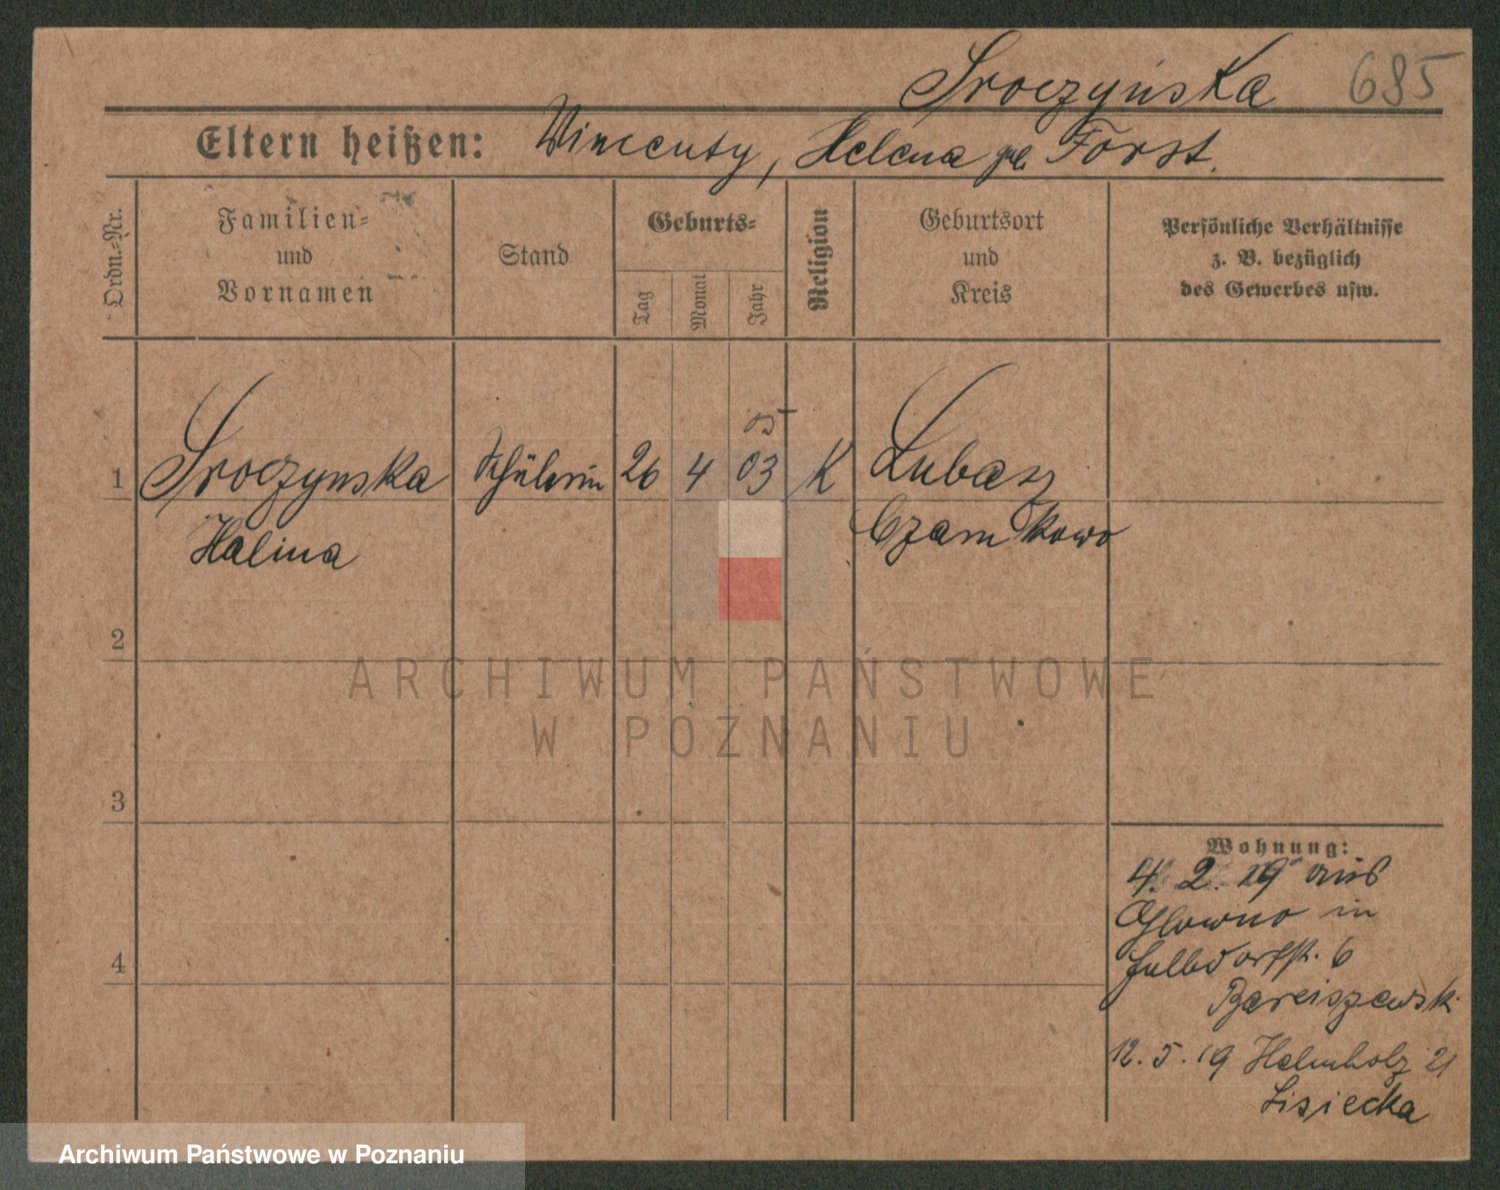 Sroczyńska 685
Eltern heißen: Wincenty, Helena geb Forst.
Ordn.=Nr.
Familien=
und
Vornamen
Stand
Geburts=
Tag
Monat
Jahr
Religion
Geburtsort
und
Kreis
Persönliche Verhältnisse
z. B. bezüglich
des Gewerbes usw.
05
1 Sroczynska Schülerin 26 4 03 K Lubasz
Halina Czarnikowo
2
ARCHIWUM PAŃSTWOWE
W POZNANIU
3
Wohnung:
4. 2. 19 aus
Glowno in
6
4
12. 5. 19 Helmholz 21
Lisiecka
Archiwum Państwowe w Poznaniu